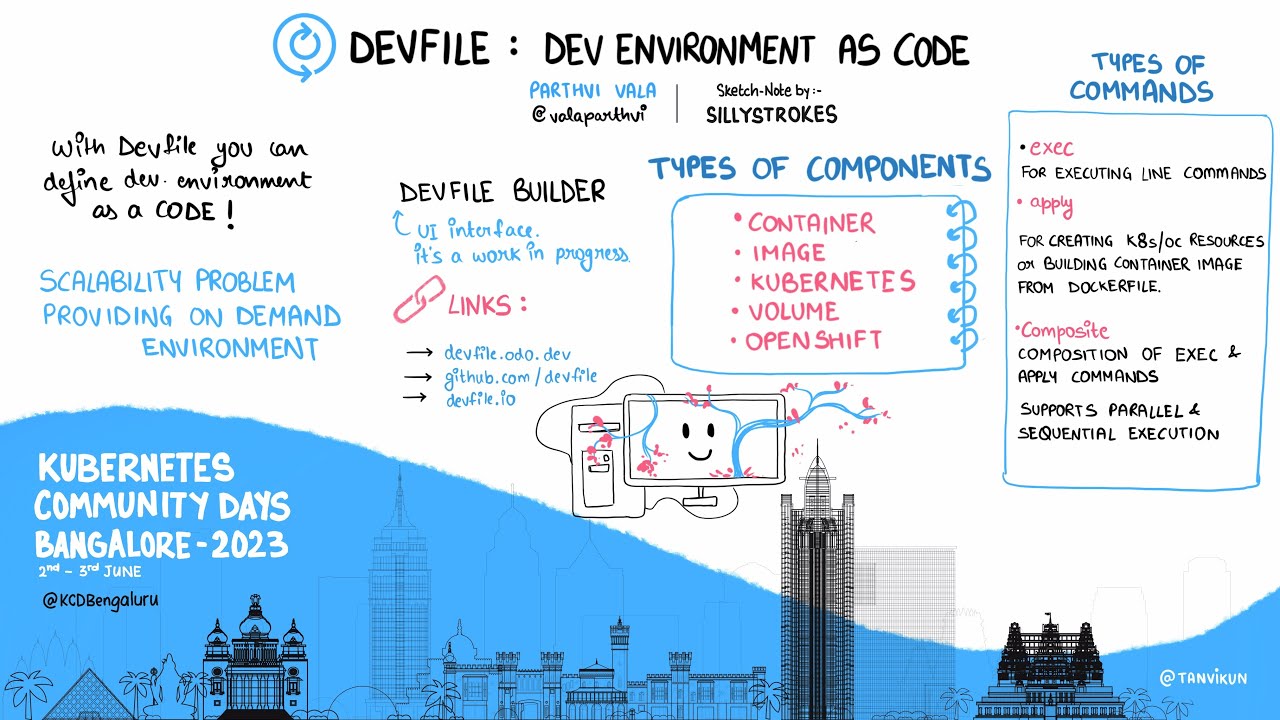 DEVFILE : DEV ENVIRONMENT AS CODE
PARTHVI VALA
@valaparthvi
Sketch-Note by:-
SILLYSTROKES
With Devfile you can
define dev. environment
as a CODE!
SCALABILITY PROBLEM
PROVIDING ON DEMAND
ENVIRONMENT
DEVFILE BUILDER
UI interface.
it's a work in progress.
LINKS:
→ devfile.odo.dev
→ github.com/devfile
→ devfile.io
TYPES OF COMPONENTS
• CONTAINER
• IMAGE
• KUBERNETES
• VOLUME
• OPENSHIFT
TYPES OF
COMMANDS
• exec
FOR EXECUTING LINE COMMANDS
• apply
FOR CREATING K8s/OC RESOURCES
or BUILDING CONTAINER IMAGE
FROM DOCKERFILE.
• Composite
COMPOSITION OF EXEC &
APPLY COMMANDS
SUPPORTS PARALLEL &
SEQUENTIAL EXECUTION
KUBERNETES
COMMUNITY DAYS
BANGALORE - 2023
2nd - 3rd JUNE
@KCDBengaluru
@TANVIKUN